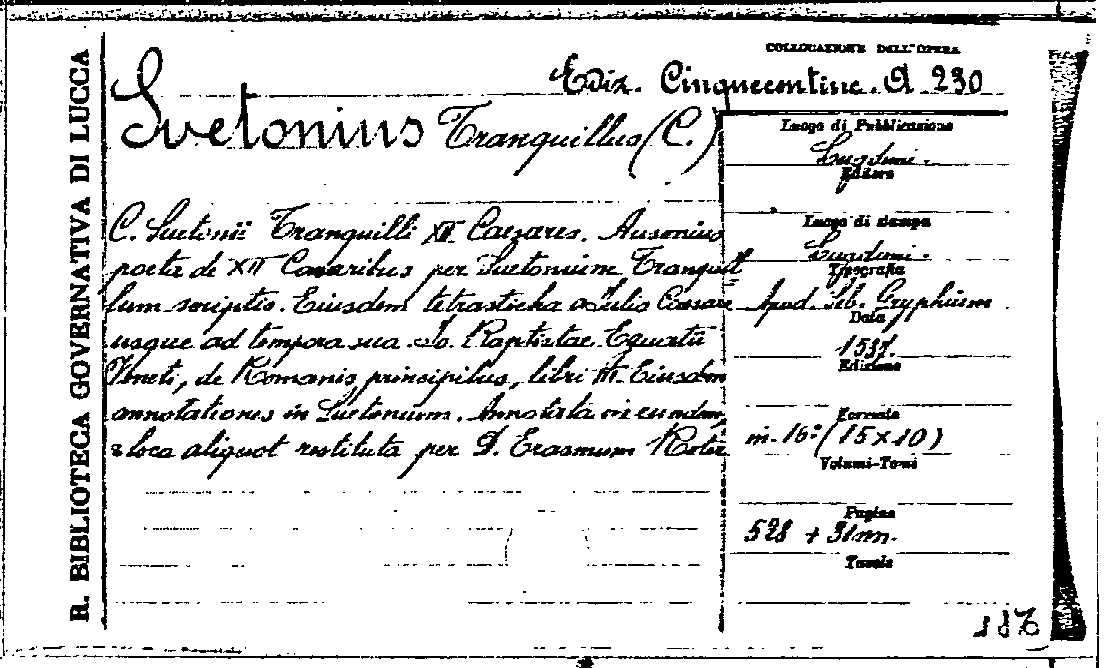 R. BIBLIOTECA GOVERNATIVA DI LUCCA
COLLOCAZIONE DELL'OPERA
Ediz. Cinquecentine. A 230
Svetonius Tranquillus (C.)
C. Suetonii Tranquilli XII Caesares. Ausonius
poeta de XII Caesaribus per Suetonium Tranquil
lum scriptis. Eiusdem tetrasticha a Iulio Caesare
usque ad tempora sua. Io. Baptistae Egnatii
Veneti, de Romanis principibus, libri III. Eiusdem
annotationes in Suetonium. Annotata in eundem
& loca aliquot restituta per D. Erasmum Roter
Luogo di Pubblicazione
Lugduni.
Editore
Luogo di stampa
Lugduni.
Tipografia
Apud Seb. Gryphium
Data
1537.
Edizione
Formato
in-16° (15x10)
Volumi-Tomi
Pagine
528 + 31nn.
Tavole